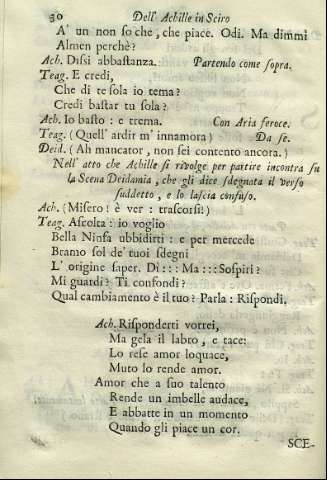 30 Dell' Achille in Sciro
A' un non so che, che piace. Odi. Ma dimmi
Almen perchè?
Ach. Dissi abbastanza. Partendo come sopra.
Teag. E credi,
Che di te sola io tema?
Credi bastar tu sola?
Ach. Io basto: e trema. Con Aria feroce.
Teag. (Quell' ardir m' innamora) Da se.
Deid. (Ah mancator, non sei contento ancora.)
Nell' atto che Achille si rivolge per partire incontra su
la Scena Deidamia, che gli dice sdegnata il verso
suddetto, e lo lascia confuso.
Ach. (Misero! è ver: trascorsi!)
Teag. Ascolta: io voglio
Bella Ninfa ubbidirti: e per mercede
Bramo sol de' tuoi sdegni
L' origine saper. Di::: Ma::: Sospiri?
Mi guardi? Ti confondi?
Qual cambiamento è il tuo? Parla: Rispondi.
Ach. Risponderti vorrei,
Ma gela il labro, e tace:
Lo rese amor loquace,
Muto lo rende amor.
Amor che a suo talento
Rende un imbelle audace,
E abbatte in un momento
Quando gli piace un cor.
SCE-